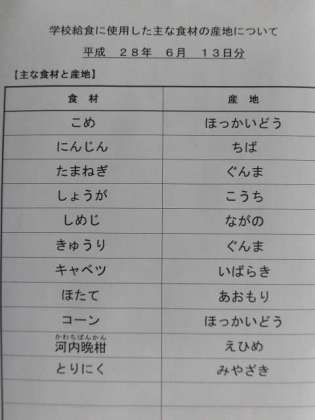 学校給食に使用した主な食材の産地について
平成　２８年　６月　１３日分
【主な食材と産地】
食　材　産　地
こめ　ほっかいどう
にんじん　ちば
たまねぎ　ぐんま
しょうが　こうち
しめじ　ながの
きゅうり　ぐんま
キャベツ　いばらき
ほたて　あおもり
コーン　ほっかいどう
かわちばんかん
河内晩柑　えひめ
とりにく　みやざき